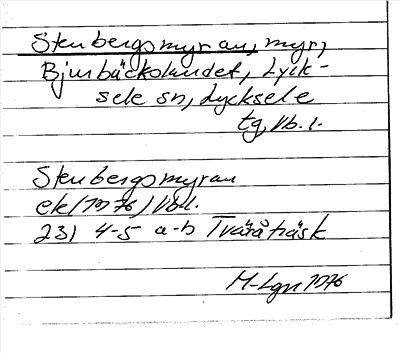 Stenbergsmyran, myr,
Bjurbäckslandet, Lyck-
sele sn, Lycksele
tg, Vb. l.
Stenbergsmyran
ek (1976) Vb l.
23 I 4-5 a-b Tväråträsk
M-Lgn 1976